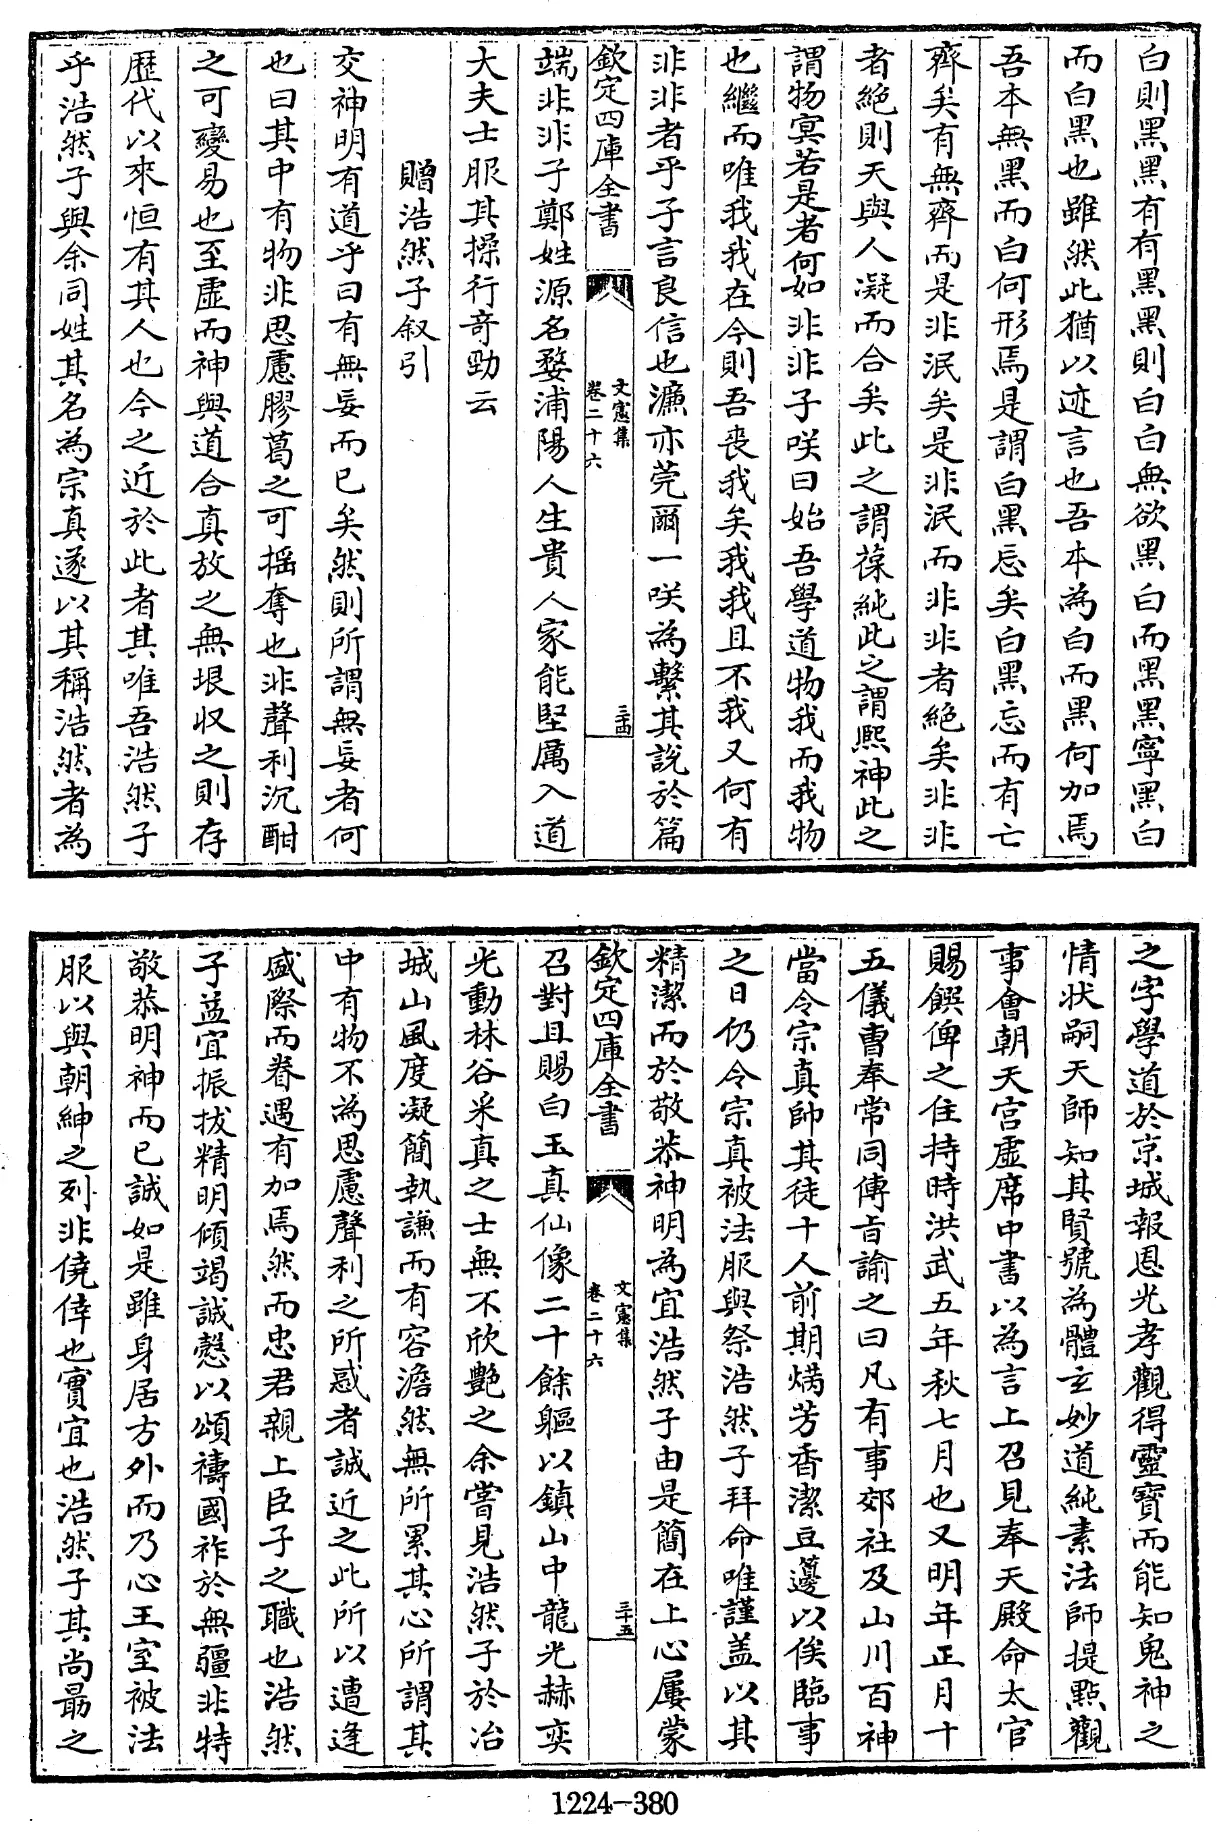 白則黑黑有有黑黑則白白無欲黑白而黑黑寧黑白
而白黑也雖然此猶以迹言也吾本為白而黑何加焉
吾本無黑而白何形焉是謂白黑忘矣白黑忘而有亡
齊矣有無齊而是非泯矣是非泯而非非者絶矣非非
者絶則天與人凝而合矣此之謂葆純此之謂熙神此之
謂物冥若是者何如非非子咲曰始吾學道物我而我物
也繼而唯我我在今則吾喪我矣我我且不我又何有
非非者乎子言良信也濂亦莞爾一咲為繫其說於篇
欽定四庫全書
文憲集
卷二十六
三十四
端非非子鄭姓源名婺浦陽人生貴人家能堅厲入道
大夫士服其操行奇勁云
贈浩然子叙引
交神明有道乎曰有無妄而已矣然則所謂無妄者何
也曰其中有物非思慮膠葛之可摇奪也非聲利沉酣
之可變易也至虛而神與道合真放之無垠収之則存
歴代以來恒有其人也今之近於此者其唯吾浩然子
乎浩然子與余同姓其名為宗真遂以其稱浩然者為
之字學道於京城報恩光孝觀得靈寶而能知鬼神之
情狀嗣天師知其賢號為體玄妙道純素法師提點觀
事會朝天宫虛席中書以為言上召見奉天殿命太官
賜饌俾之住持時洪武五年秋七月也又明年正月十
五儀曹奉常同傳旨諭之曰凡有事郊社及山川百神
當令宗真帥其徒十人前期爇芳香潔豆籩以俟臨事
之日仍令宗真被法服與祭浩然子拜命唯謹盖以其
精潔而於敬恭神明為宜浩然子由是簡在上心屢蒙
欽定四庫全書
文憲集
卷二十六
三十五
召對且賜白玉真仙像二十餘軀以鎮山中龍光赫奕
光動林谷采真之士無不欣艷之余嘗見浩然子於冶
城山風度凝簡執謙而有容澹然無所累其心所謂其
中有物不為思慮聲利之所惑者誠近之此所以遭逢
盛際而眷遇有加焉然而忠君親上臣子之職也浩然
子益宜振拔精明傾竭誠慤以頌禱國祚於無疆非特
敬恭明神而已誠如是雖身居方外而乃心王室被法
服以與朝紳之列非僥倖也實宜也浩然子其尚勗之
1224-380